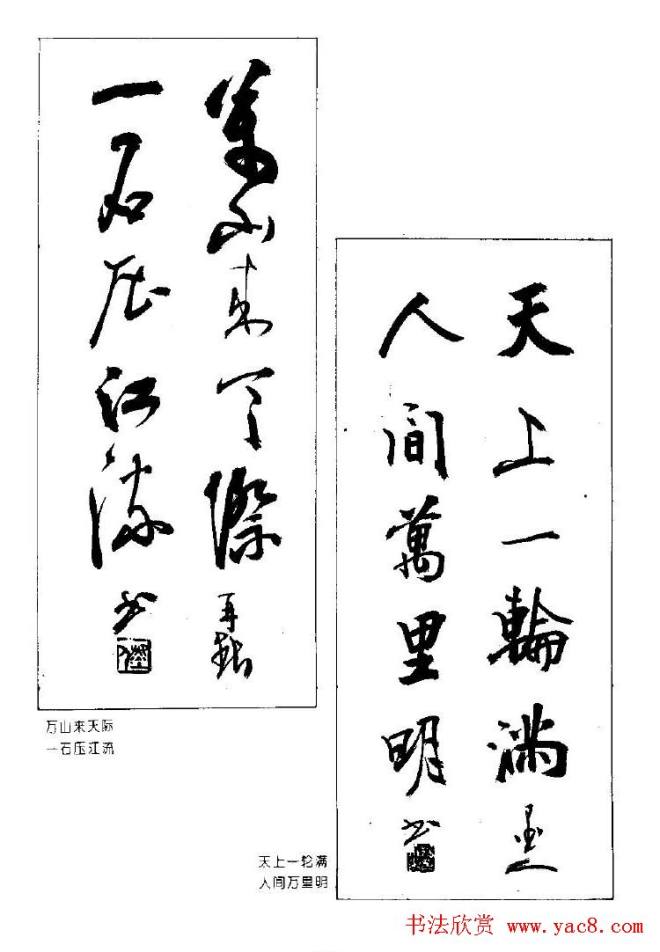 萬山来天際
一石压江流
书
万山来天际
一石压江流
天上一輪滿
人间萬里明
书
天上一轮满
人间万里明
书法欣赏 www.yac8.com